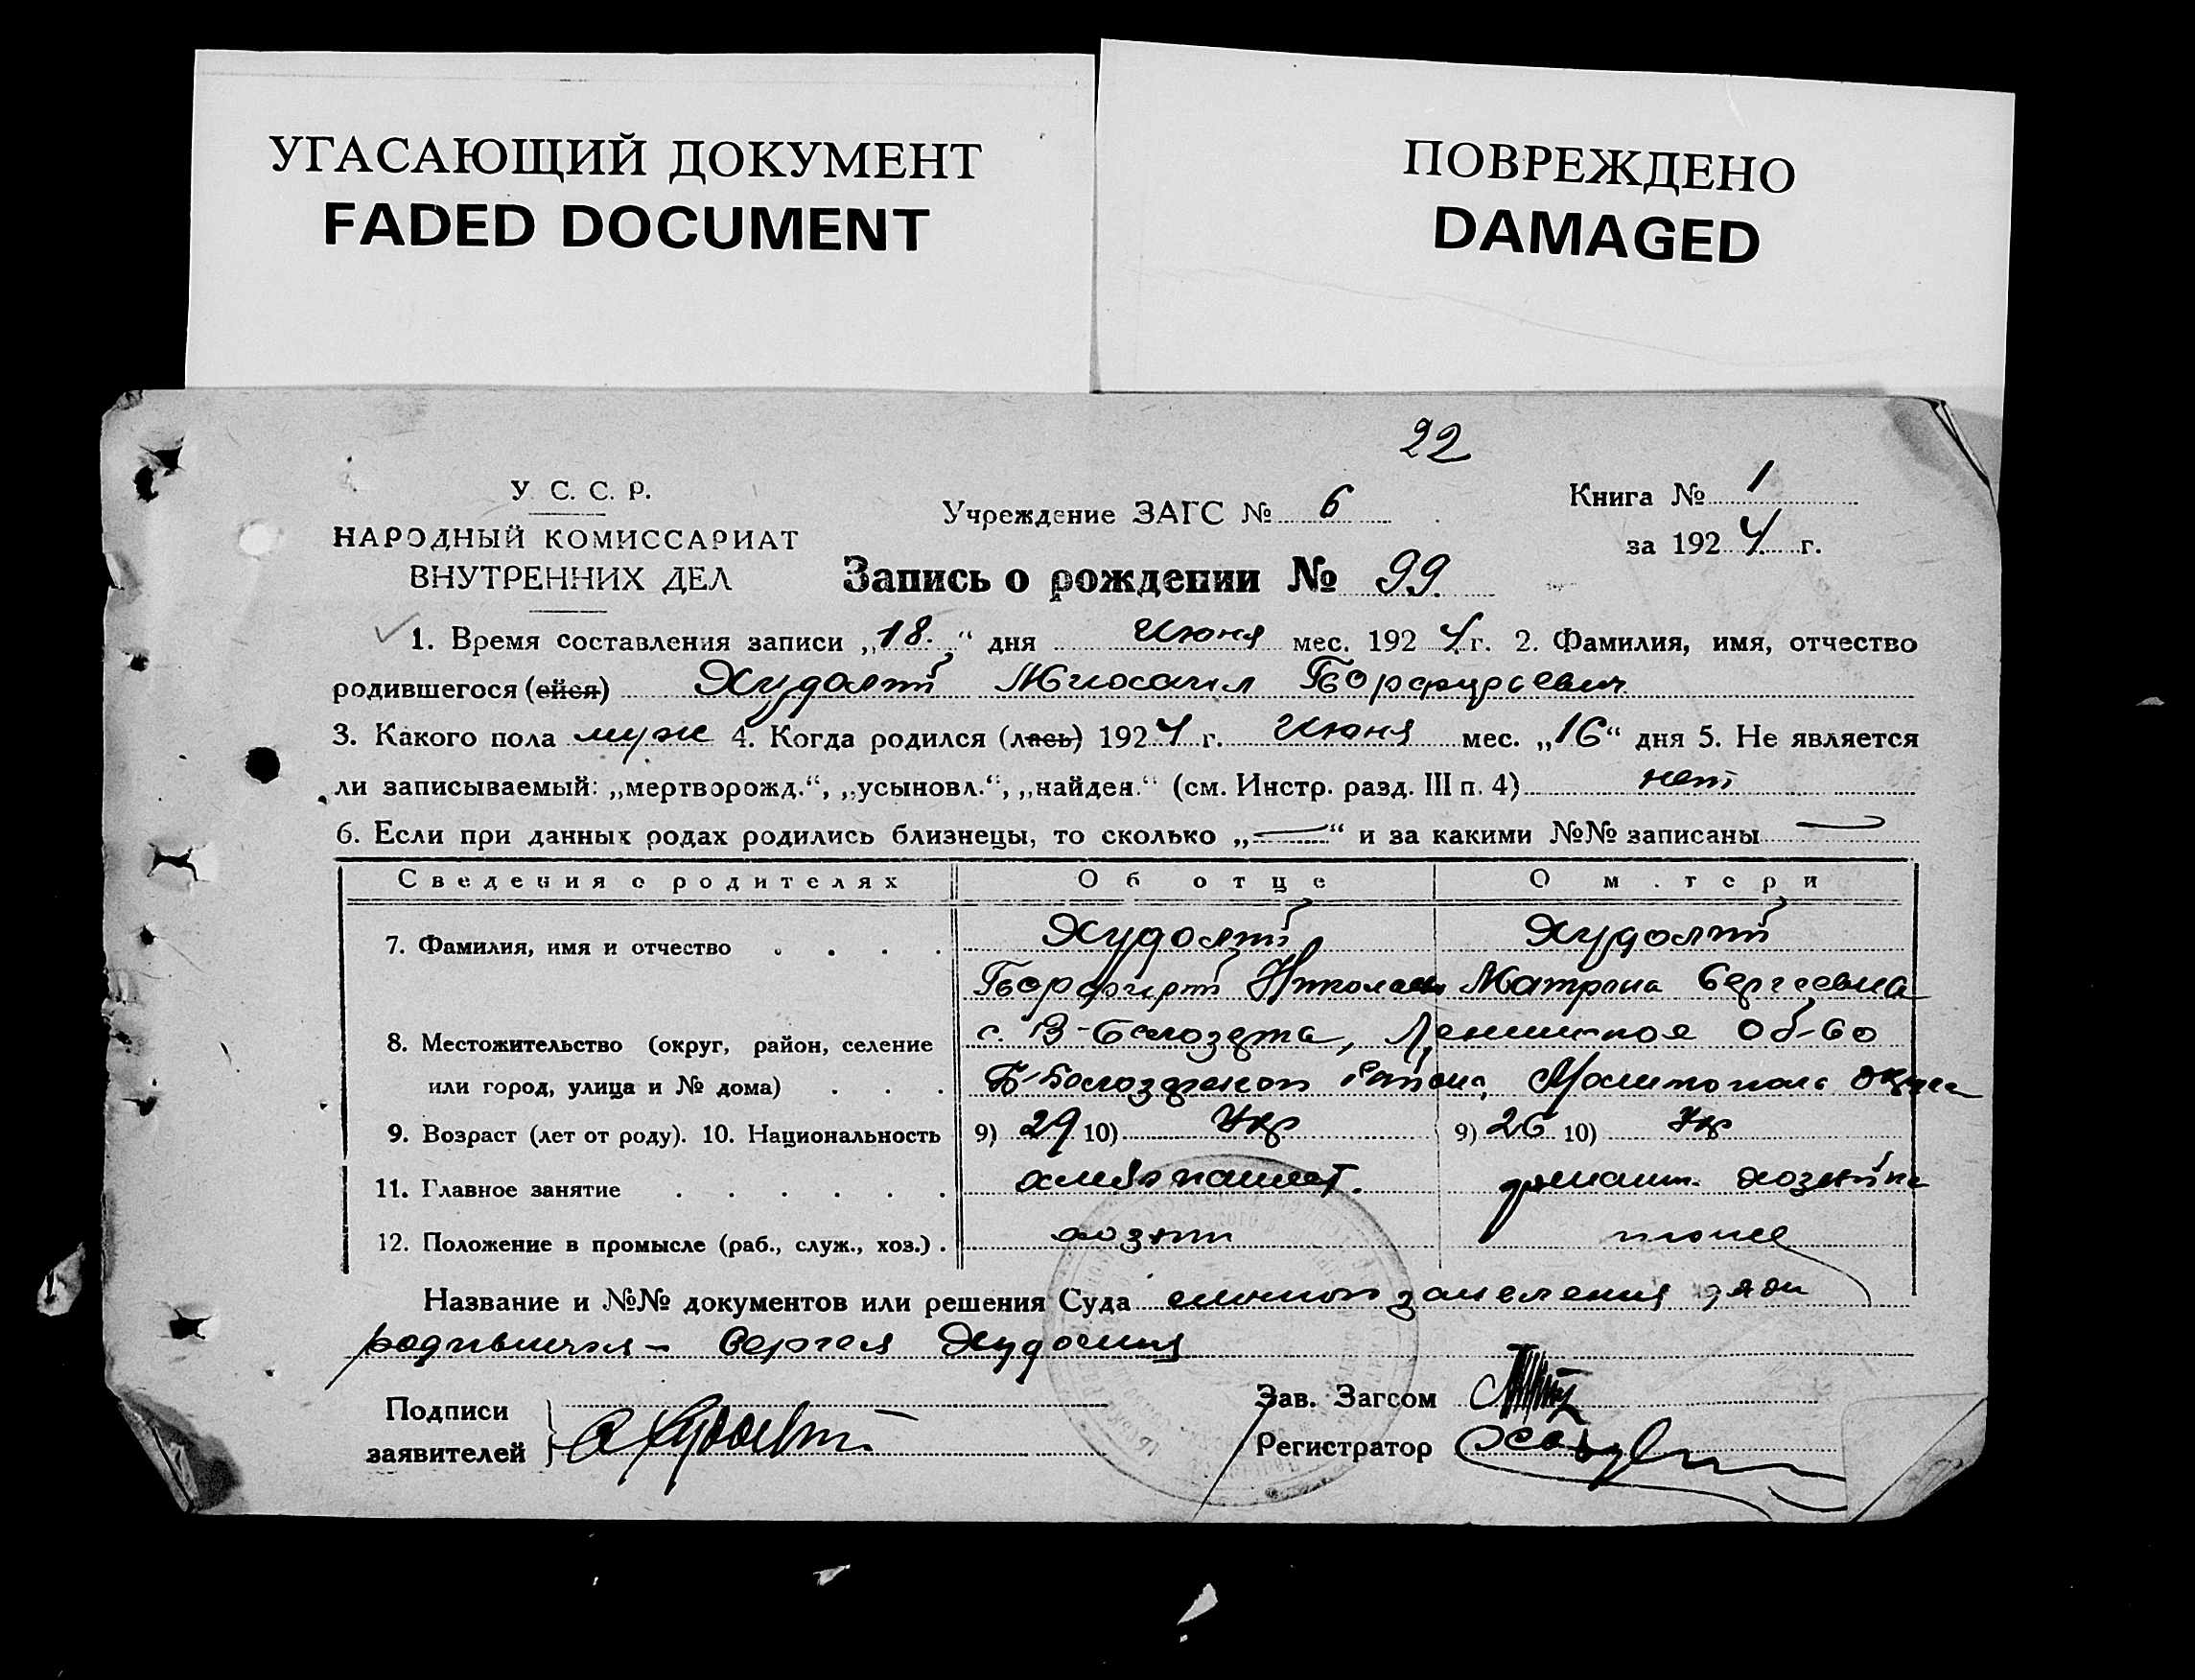 УГАСАЮЩИЙ ДОКУМЕНТ
FADED DOCUMENT
ПОВРЕЖДЕНО
DAMAGED
22
У. С. С. Р.
НАРОДНЫЙ КОМИССАРИАТ
ВНУТРЕННИХ ДЕЛ
Учреждение ЗАГС № 6
Книга № 1
за 1924 г.
Запись о рождении № 99.
1. Время составления записи „18.“ дня Июня мес. 1924 г. 2. Фамилия, имя, отчество
родившегося (ейся) Худолій
3. Какого пола муж 4. Когда родился (лась) 1924 г. Июня мес. „16“ дня 5. Не является
ли записываемый: „мертворожд.“, „усыновл.“, „найден.“ (см. Инстр. разд. III п. 4) нет
6. Если при данных родах родились близнецы, то сколько „—“ и за какими №№ записаны —
Сведения о родителях Об отце О матери
7. Фамилия, имя и отчество Худолій Худолій
Николаев Матрена Сергеевна
8. Местожительство (округ, район, селение с. В-Белозерка, Об-во
или город, улица и № дома) района,
9. Возраст (лет от роду). 10. Национальность 9) 29 10) Укр 9) 26 10) Укр
11. Главное занятие хлебопашест. домашн. хозяйка
12. Положение в промысле (раб., служ., хоз.) хозяин
Название и №№ документов или решения Суда заявления дяди
Сергея
Подписи
заявителей
Зав. Загсом
Регистратор